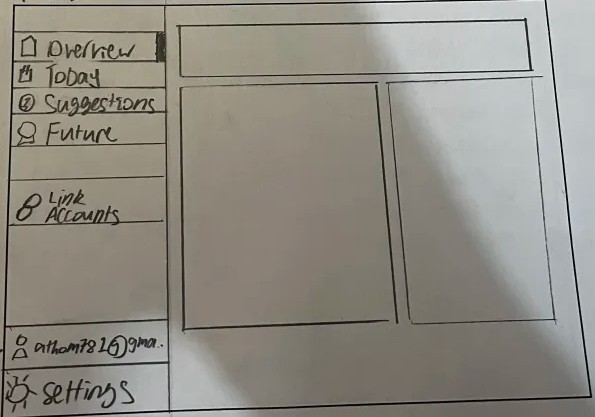 Overview
Today
Suggestions
Future
Link
Accounts
athom781@gma..
Settings